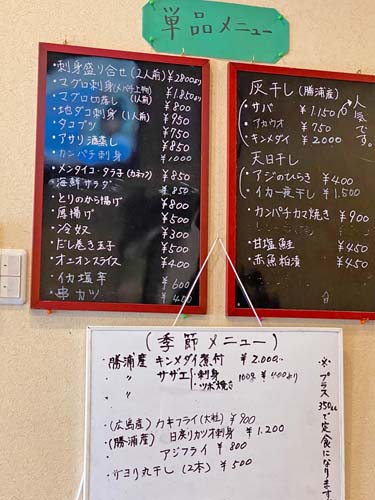 単品メニュー
・刺身盛り合せ(2人前) ¥2800より
・マグロ刺身(メバチ上物) ¥1.850より
・マグロ切落し (1人前) ¥800
・地ダコ刺身(1人前) ¥950
・タコブツ ¥750
・アサリ酒蒸し ¥850
・カンパチ刺身 ¥1000
・メンタイコ・タラ子(カネフク) ¥850
・海鮮サラダ ¥850
・とりのから揚げ ¥800
・厚揚げ ¥500
・冷奴 ¥300
・だし巻き玉子 ¥500
・オニオンスライス ¥400
・イカ塩辛 ¥600
・串カツ ¥450
灰干し(勝浦産)
・サバ ¥1.150
・アカウオ ¥750
・キンメダイ ¥2000
人気です。
天日干し
・アジのひらき ¥400
・イカ一夜干し ¥1.500
・カンパチカマ焼き ¥900
・甘塩鮭 ¥450
・赤魚粕漬 ¥450
(季節メニュー)
・勝浦産 キンメダイ煮付 ¥2.000
・〃 サザエ・刺身 100g ¥400より
・〃 ・つぼ焼き
・(広島産) カキフライ(大粒) ¥900
・(勝浦産) 日戻りカツオ刺身 ¥1.200
・〃 アジフライ ¥800
・サヨリ丸干し(2本) ¥500
※プラス350円で定食になります